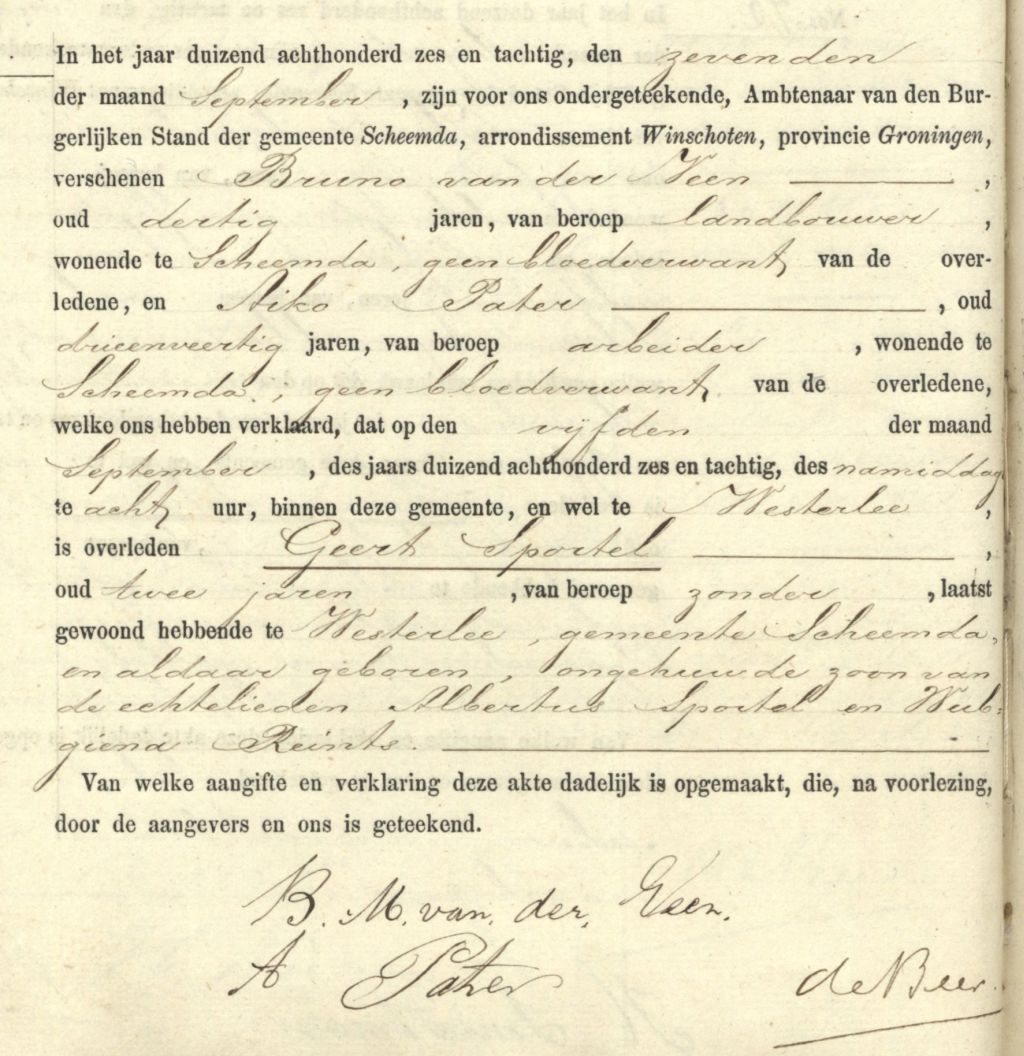 In het jaar duizend achthonderd zes en tachtig, den zevenden
der maand September, zijn voor ons ondergeteekende, Ambtenaar van den Bur-
gerlijken Stand der gemeente Scheemda, arrondissement Winschoten, provincie Groningen,
verschenen Bruno van der Veen ,
oud dertig jaren, van beroep landbouwer ,
wonende te Scheemda, geen bloedverwant van de over-
ledene, en Aiko Pater , oud
drieenveertig jaren, van beroep arbeider , wonende te
Scheemda, geen bloedverwant van de overledene,
welke ons hebben verklaard, dat op den vijfden der maand
September , des jaars duizend achthonderd zes en tachtig, des namiddag
te acht uur, binnen deze gemeente, en wel te Westerlee ,
is overleden Geert Sportel ,
oud twee jaren , van beroep zonder , laatst
gewoond hebbende te Westerlee, gemeente Scheemda,
en aldaar geboren, ongehuwde zoon van
de echtelieden Albertus Sportel en Wub=
giena Reints.
Van welke aangifte en verklaring deze akte dadelijk is opgemaakt, die, na voorlezing,
door de aangevers en ons is geteekend.
B. M. van der Veen.
A Pater
de Beer.